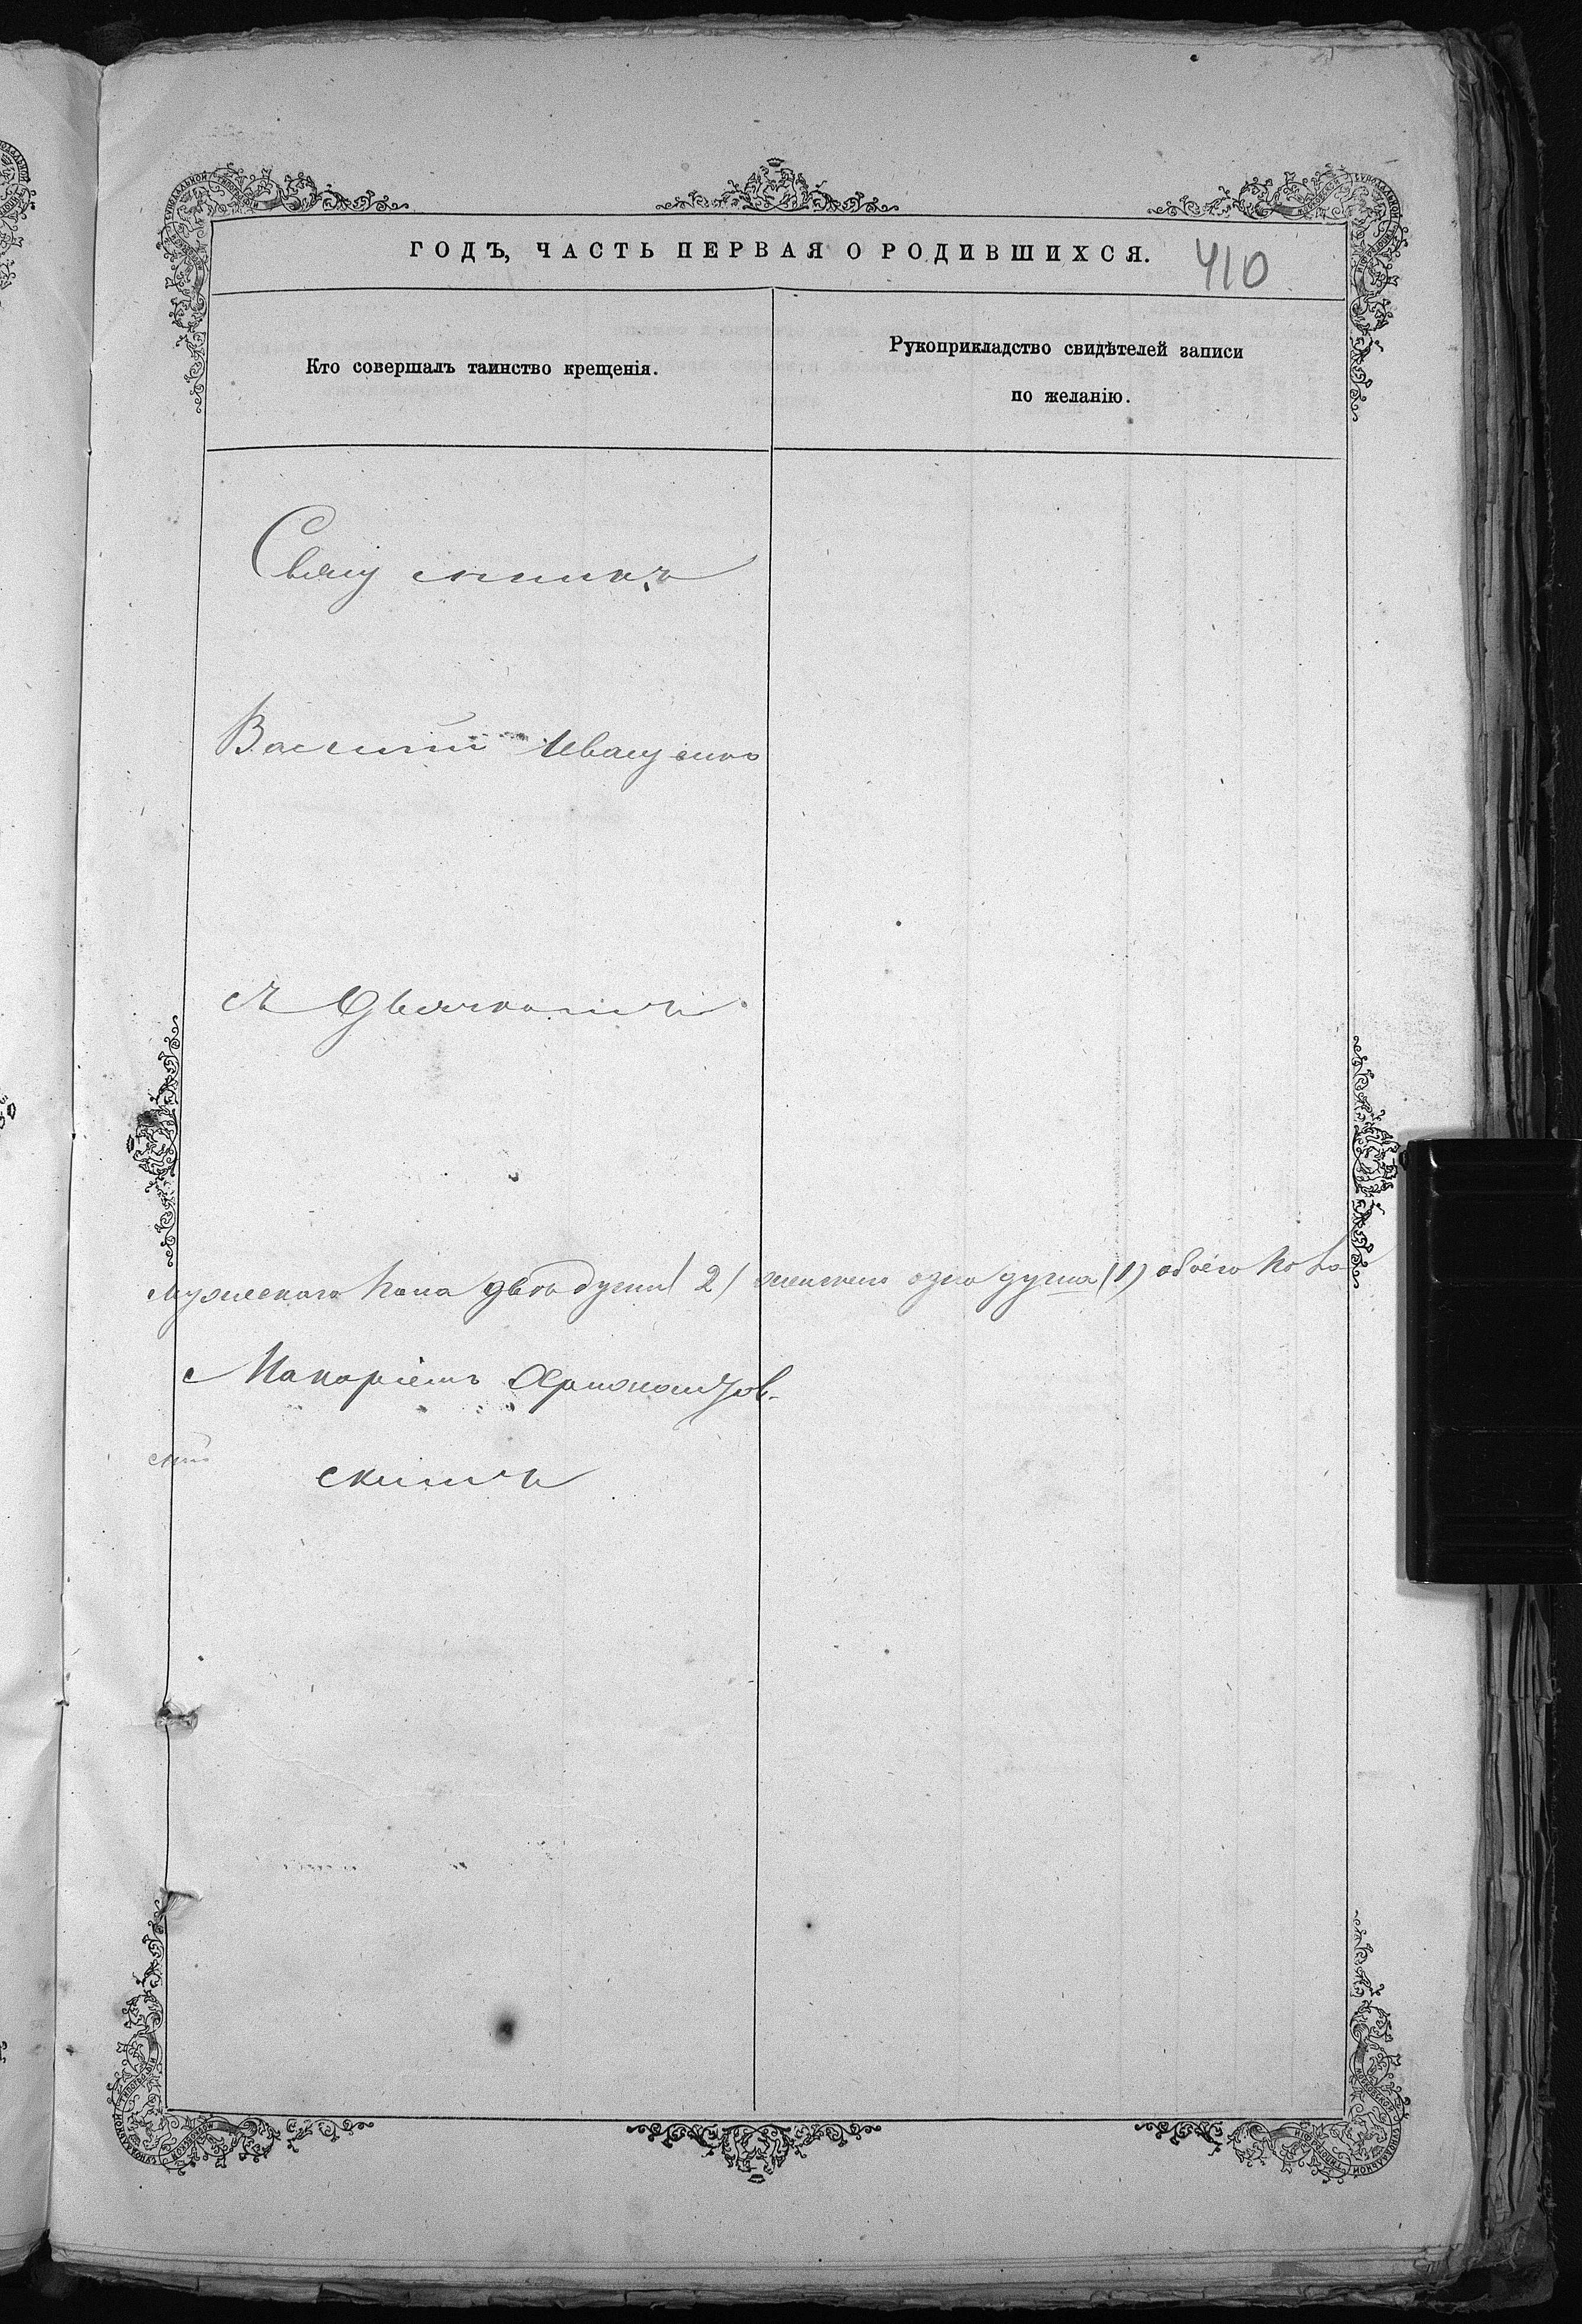 ГОДЪ, ЧАСТЬ ПЕРВАЯ О РОДИВШИХСЯ. 410
Кто совершалъ таинство крещенія.
Рукоприкладство свидѣтелей записи
по желанію.
Священникъ
Василий Иващенко
съ Дьячкомъ
мужескаго пола двѣ души (2) женскаго одна душа (1) обоего пола
Макаріемъ
скимъ